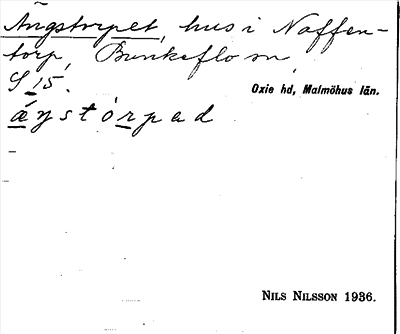 Ängstorpet, hus i Naffen-
torp, Bunkeflo sn,
S 15.
Oxie hd, Malmöhus län.
ä́ŋstòrpəd
NILS NILSSON 1936.